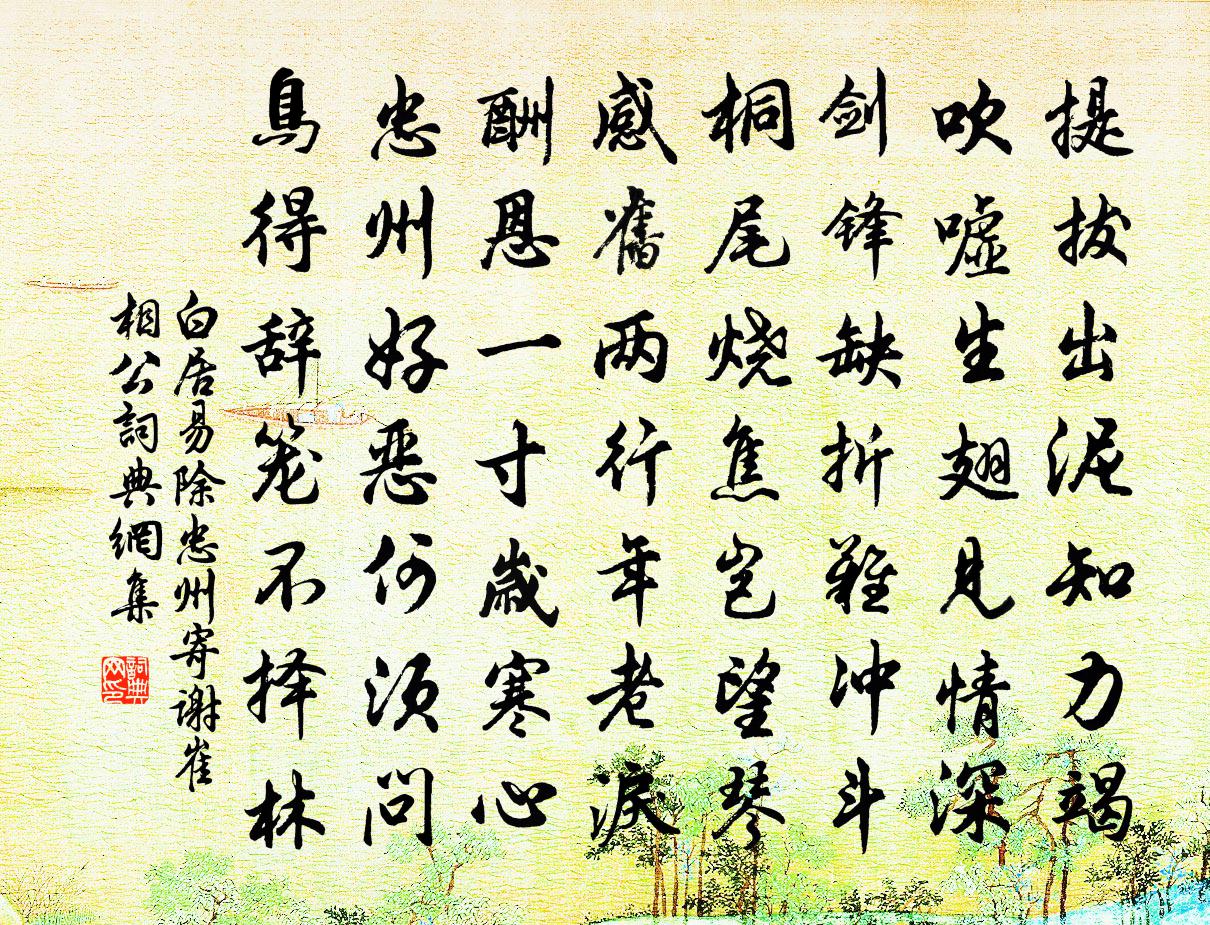 提拔出泥知力竭
吹嘘生翅见情深
剑锋缺折难冲斗
桐尾烧焦岂望琴
感旧两行年老泪
酬恩一寸岁寒心
忠州好恶何须问
鸟得辞笼不择林
白居易除忠州寄谢崔
相公詞典網集
詞典
网印